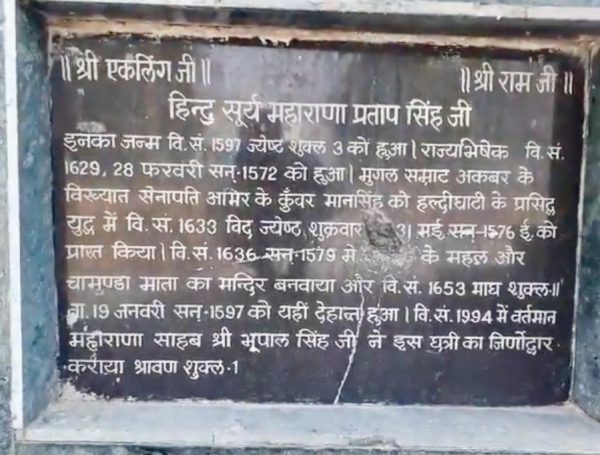 ॥ श्री एकलिंग जी ॥ ॥ श्री राम जी ॥
हिन्दु सूर्य महाराणा प्रताप सिंह जी
इनका जन्म वि. सं. 1597 ज्येष्ठ शुक्ल 3 को हुआ। राज्यभिषेक वि. सं.
1629, 28 फरवरी सन्-1572 को हुआ। मुगल सम्राट अकबर के
विख्यात सेनापति आमेर के कुँवर मानसिंह को हल्दीघाटी के प्रसिद्ध
युद्ध में वि. सं. 1633 विद ज्येष्ठ शुक्रवार 31 मई सन्-1576 ई. को
प्रास्त किया। वि. सं. 1636 सन्-1579 मे के महल और
चामुण्डा माता का मन्दिर बनवाया और वि. सं. 1653 माघ शुक्ल-॥
ता. 19 जनवरी सन्-1597 को यहीं देहान्त हुआ। वि. सं. 1994 में वर्तमान
महाराणा साहब श्री भूपाल सिंह जी ने इस छत्री का जिर्णोद्वार
कराया श्रावण शुक्ल-1